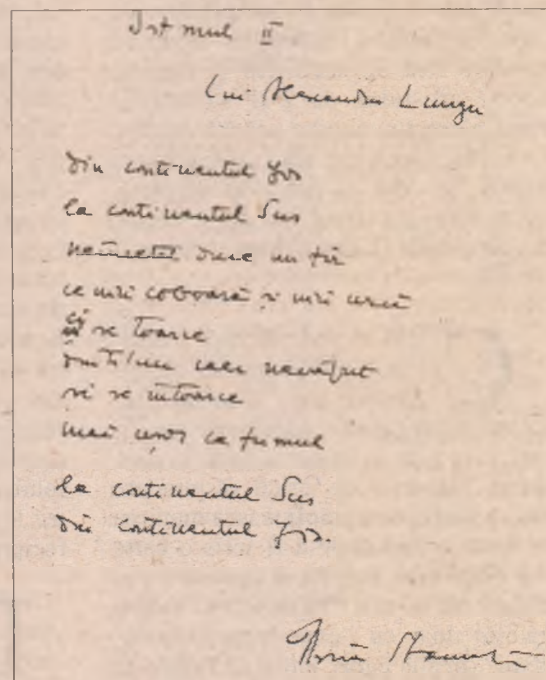 Istmul II
Lui Alexandru Lungu
din continentul Jos
la continentul Sus
neîncetat duce un fir
ce nici coboară și nici urcă
ci se toarce
dintr'un caer nevăzut
și se întoarce
mai ușor ca fumul
la continentul Sus
din continentul Jos.